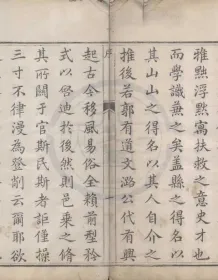 雅黜浮崇扶教之意史才也
而學識蕪之矣盖縣之得名以
其山山之得名以其人自介之
推後若郭有道文潞公代有興
序
起古今移風易俗全賴前型矜
式以啓迪於後然則邑乗之修
其所關于官斯民斯者詎僅操
三寸不律漫為登剞云爾耶欲